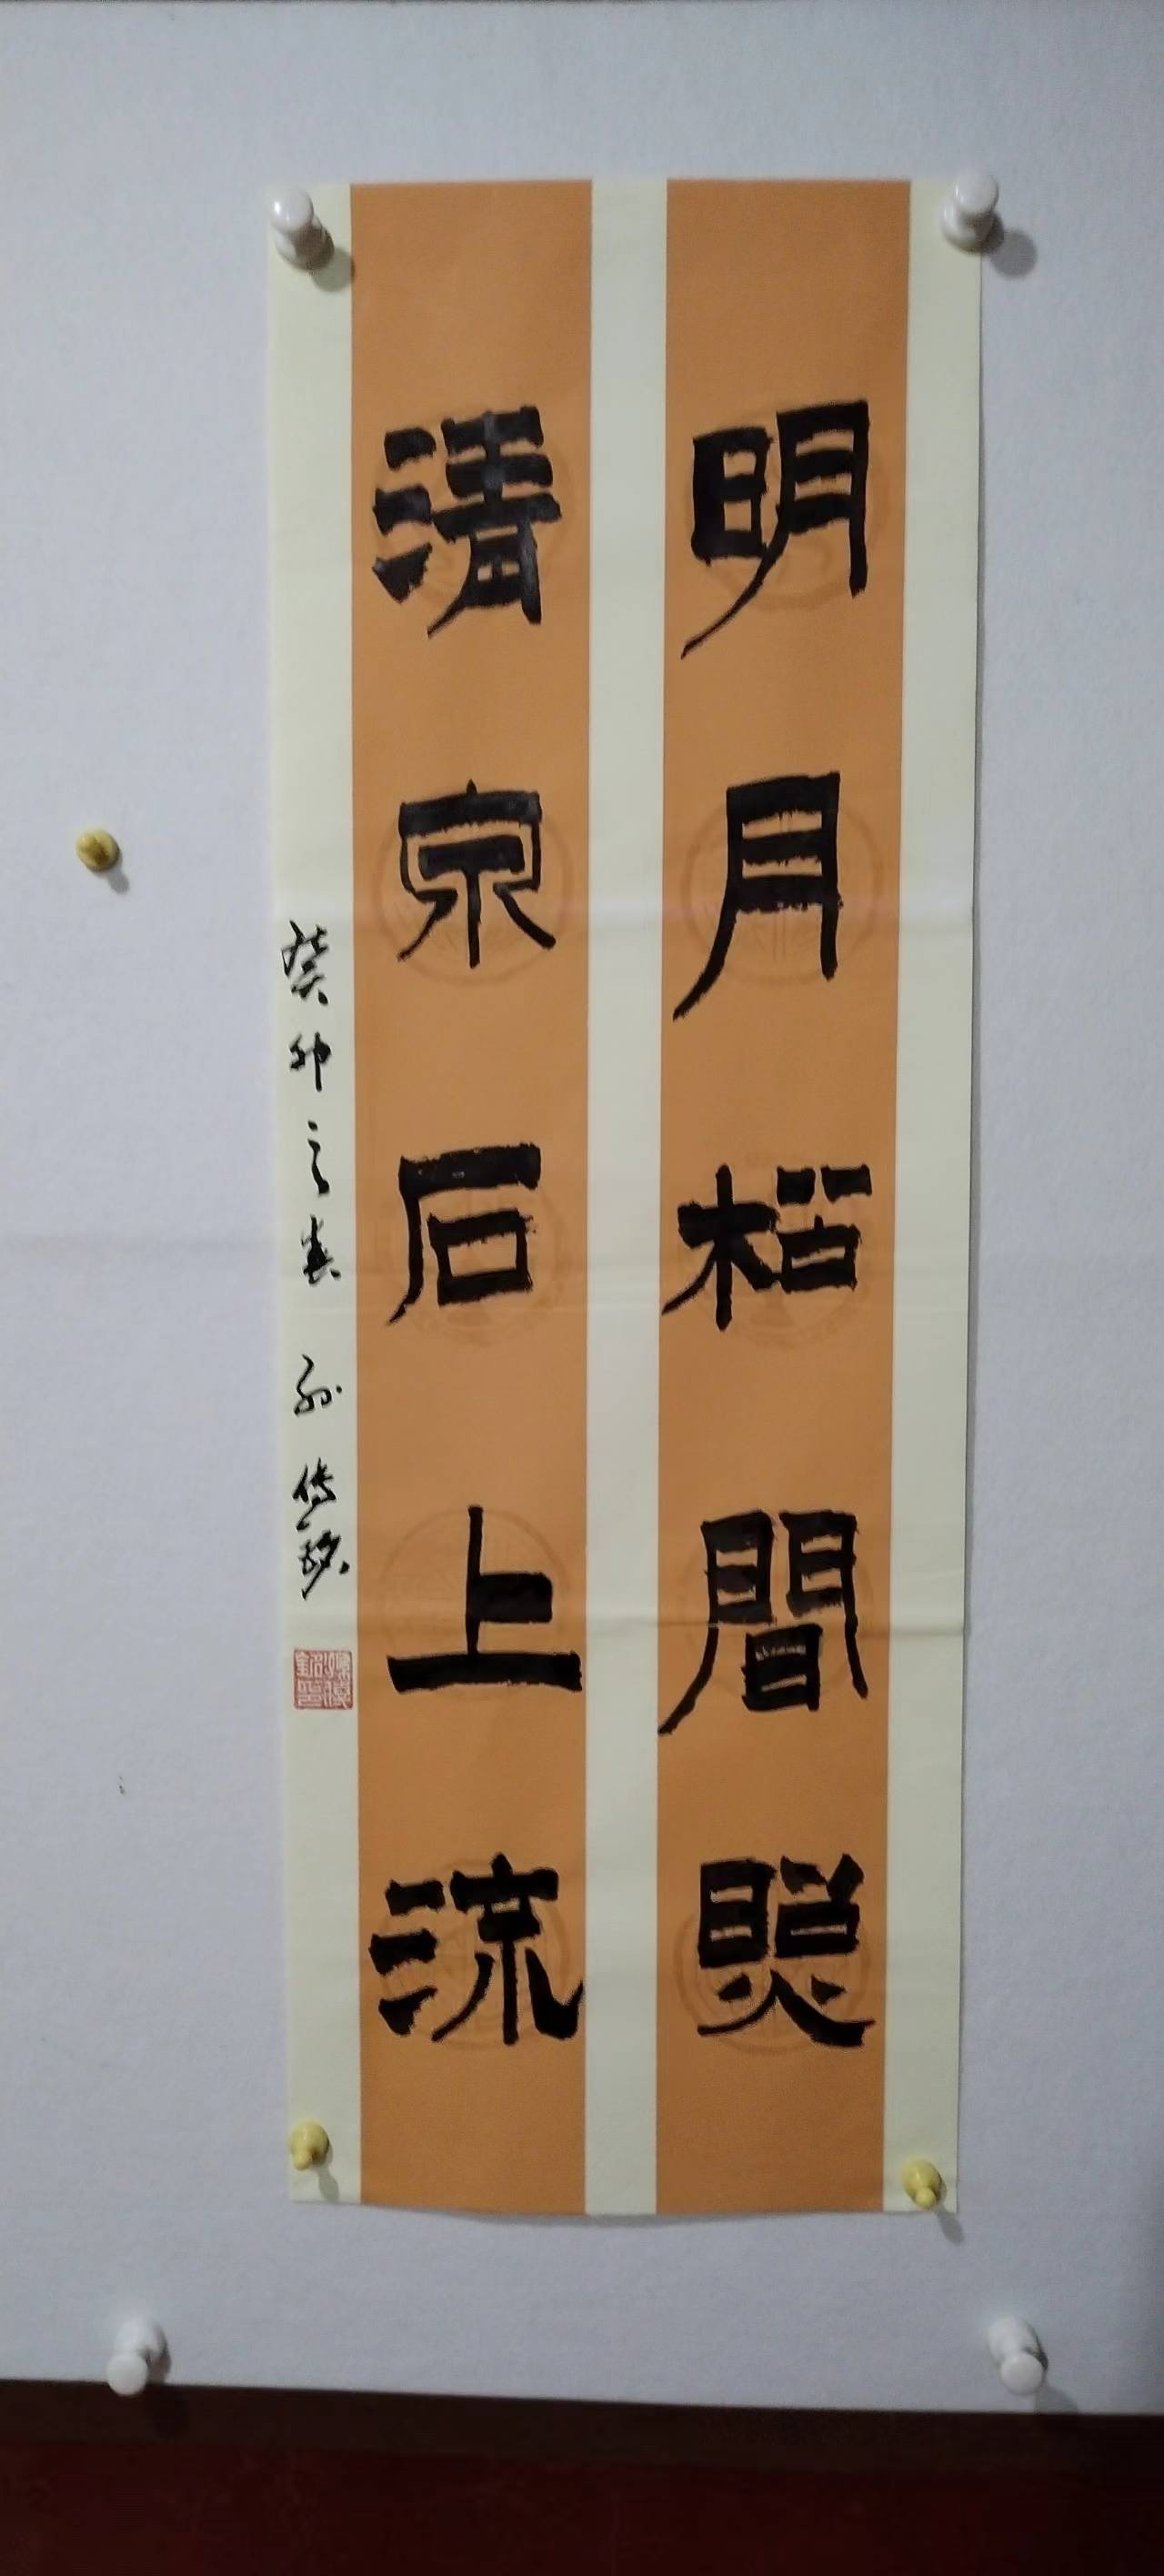 明月松間照
清泉石上流
癸卯之春 孙传